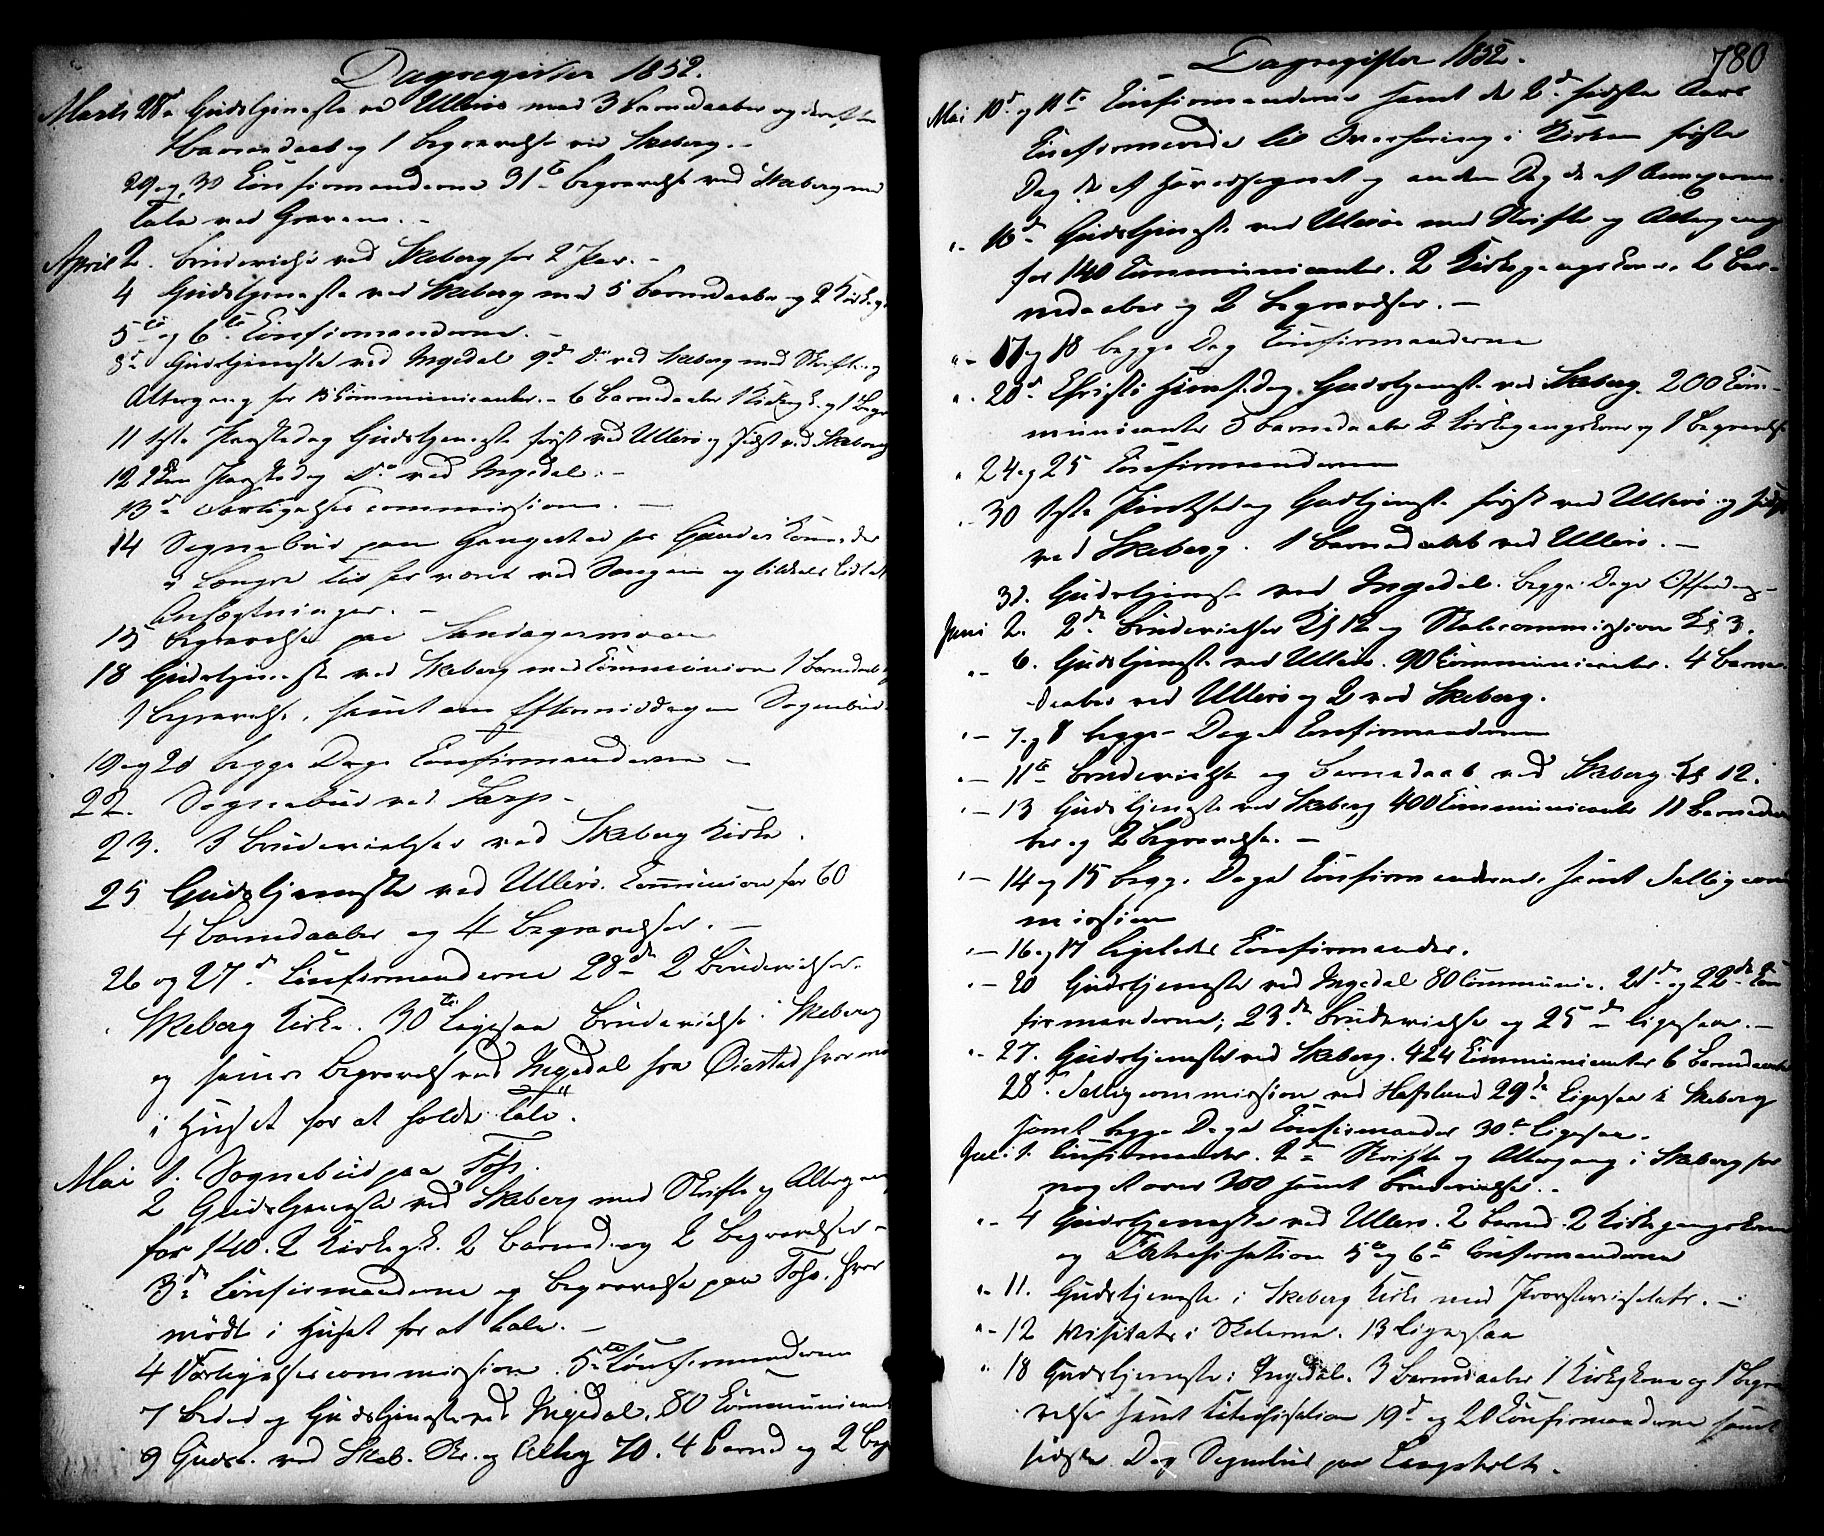 Dagregister 1852.
Marts 28de Gudstjeneste ved Ullerø med 3 Barnedaaber og derefter
1 Barnedaab og 1 Begravelse ved Skeberg. -
29 og 30 Confirmanderne 31te Begravelse ved Skeberg med
Tale ved Graven. -
April 2. Brudevielse ved Skeberg for 2 Par. -
4 Gudstjeneste ved Skeberg med 5 Barnedaaber og 2 Kirkeg
5te og 6te Confirmanderne. -
8de Gudstjeneste ved Ingedal 9de Do ved Skeberg med Skrifte og
Altergang for Communicanter. - 6 Barnedaaber 1 Kirkeg.k. og 1 Begr
11 1ste Paaskedag Gudstjeneste først ved Ullerø og sidst ved Skeberg
12 2den Paaskedag Do ved Ingedal. -
13de Forligelsescommission. -
14 Sognebud paa
og Længe ved Sangen og
Anfægtninger. -
15 Begravelse paa
18 Gudstjeneste ved Skeberg med Communion 1 Barnedaab
1 Begravelse, samt om Eftermiddagen Sognebud
19 og 20 begge Dage Confirmanderne -
22. Sognebud ved Sarp. -
23. 3 Brudevielser ved Skeberg Kirke.
25 Gudstjeneste ved Ullerø. Communion for 60
4 Barnedaaber og 4 Begravelser. -
26 og 27de Confirmanderne 28de 2 Brudevielser.
Skeberg Kirke. 30te Ligesaa Brudevielse i Skeberg
og Begravelse ved Ingedal fra Øiestad hvor
i Huset for at holde Tale.
Mai 1. Sognebud paa
2 Gudstjeneste ved Skeberg med Skrifte og Altergang
for 140. 2 Kirkeg.k. 2 Barned. og 2 Begravelser -
3de Confirmanderne og Begravelse paa hvor
mødt i Huset for at tale. -
4 Forligelsescommission. 5te Confirmanderne
7 Bededag Gudstjeneste ved Ingedal. 80 Communicant
9 Gudst. ved Skeb. Skr. og Altg 70. 4 Barned og 2 Begr
Dagregister 1852.
780
Mai 10de og 11te Confirmanderne samt de 2de sidste Aars
Confirmerede til Overhøring i Kirken første
Dag de af Hovedsognet og anden Dag de af Annexerne.
" - 16de Gudstjeneste ved Ullerø med Skrifte og Altergang
for 140 Communicanter. 2 Kirkegangskoner. 2 Bar-
nedaaber og 2 Begravelser. -
" - 17 og 18 begge Dag Confirmanderne
" - 20de Christi Himf.dag. Gudstjeneste ved Skeberg. 200 Com-
municanter 5 Barnedaaber 2 Kirkegangskoner og 1 Begravelse
" 24 og 25 Confirmanderne
" - 30 1ste Pintsedag Gudstjeneste først ved Ullerø og sidst
ved Skeberg. 1 Barnedaab ved Ullerø. -
31. Gudstjeneste ved Ingedal. begge Dage Offerdag. -
Juni 2. 2de Brudevielser Kl 12 og Skolecommission Kl 3.
" - 6. Gudstjeneste ved Ullerø. 90 Communicanter. 4 Barne-
daaber ved Ullerø og 2 ved Skeberg.
" - 7. og 8 begge Dage Confirmanderne
" - 11te Brudevielse og Barnedaab ved Skeberg. Kl 12.
" - 13 Gudstjeneste ved Skeberg 400 Communicanter 11 Barnedaa-
ber og 2 Begravelse. -
" - 14 og 15 begge Dage Confirmanderne, samt Fattigcom-
mission
" - 16 og 17 ligeledes Confirmander.
" - 20 Gudstjeneste ved Ingedal 80 Communic. 21de og 22de Con
firmanderne; 23de Brudevielse og 25de ligesaa. -
" - 27. Gudstjeneste ved Skeberg. 424 Communicanter 6 Barnedaaber
28de Fattigcommission ved Hafslund 29de Ligesaa i Skeberg
samt begge Dage Confirmander 30te ligesaa.
Juli 1. Confirmander. 2den Skrifte og Altergang i Skeberg for
noget over 300 samt Brudevielse. -
" - 4 Gudstjeneste ved Ullerø. 2 Barned. 2 Kirkegangskoner
og Catechisation 5te og 6te Confirmanderne
" - 11. Gudstjeneste i Skeberg Kirke med Provstevisitats. -
" - 12 Visitats i Skolerne. 13 Ligesaa
" 18 Gudstjeneste i Ingedal. 3 Barnedaaber 1 Kirkegkone og 1 Begra
velse samt Catechisation 19de og 20 Confirmanderne samt
sidste Dag Sognebud paa Langholt.